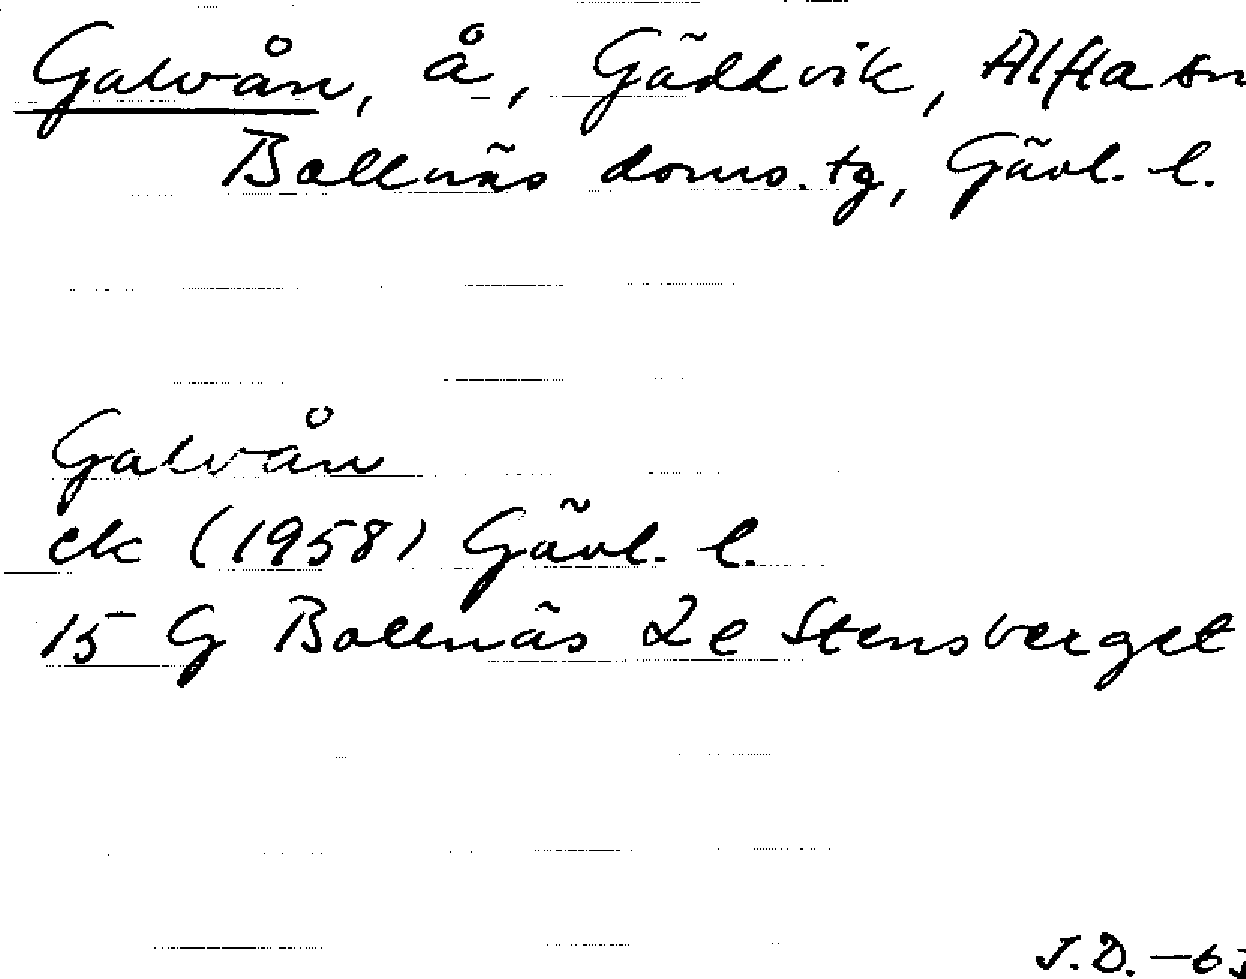 Galvån, å, Gäddvik, Alfta sn
Bollnäs doms. tg, Gävl. l.
Galvån
ek (1958) Gävl. l.
15 G Bollnäs 2e Stensberget
J.D. -63